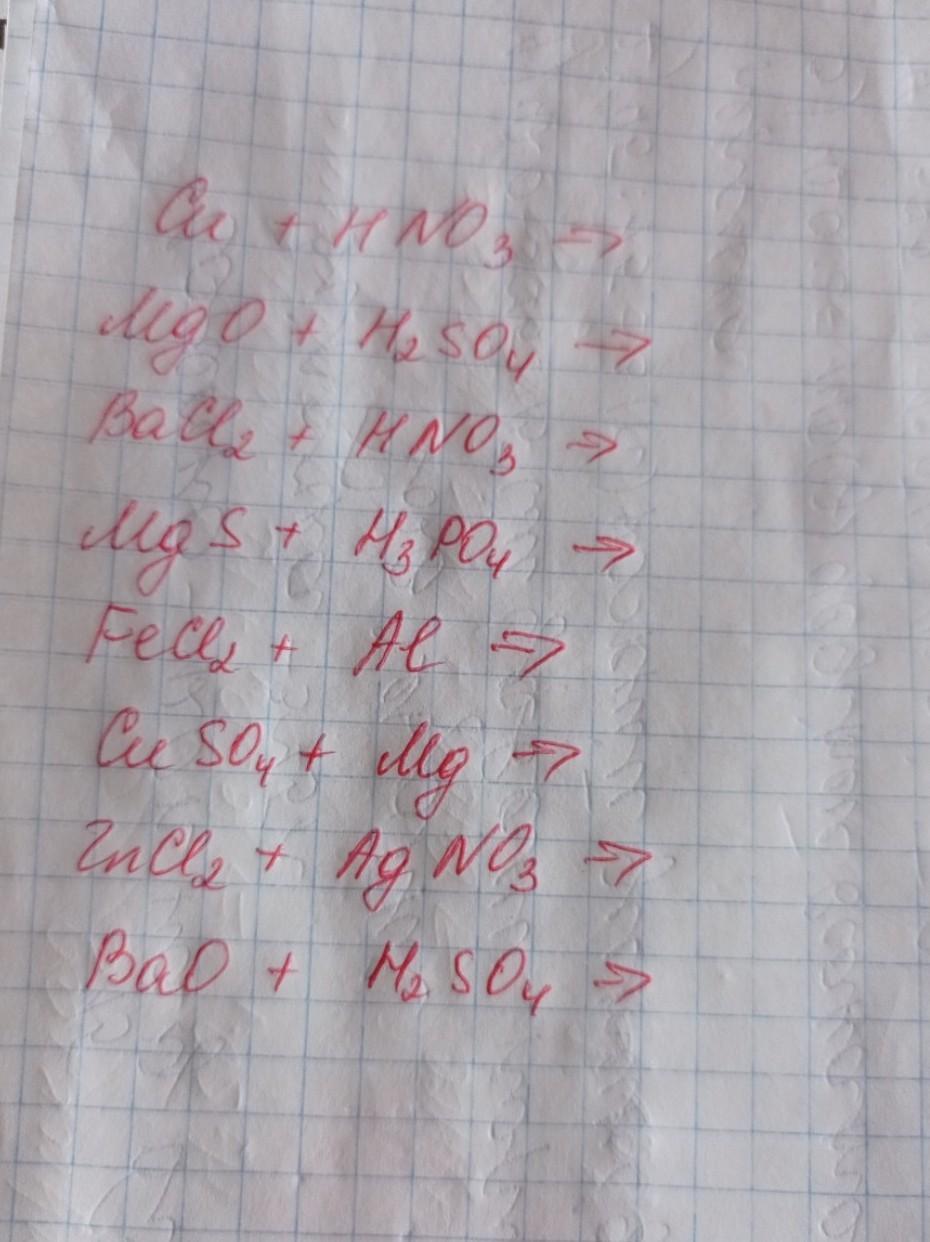 Cu + HNO₃ ⇒
MgO + H₂SO₄ →
BaCl₂ + HNO₃ ⇒
MgS + H₃PO₄ →
FeCl₂ + Al ⇒
CuSO₄ + Mg ⇒
ZnCl₂ + AgNO₃ ⇒
BaO + H₂SO₄ ⇒